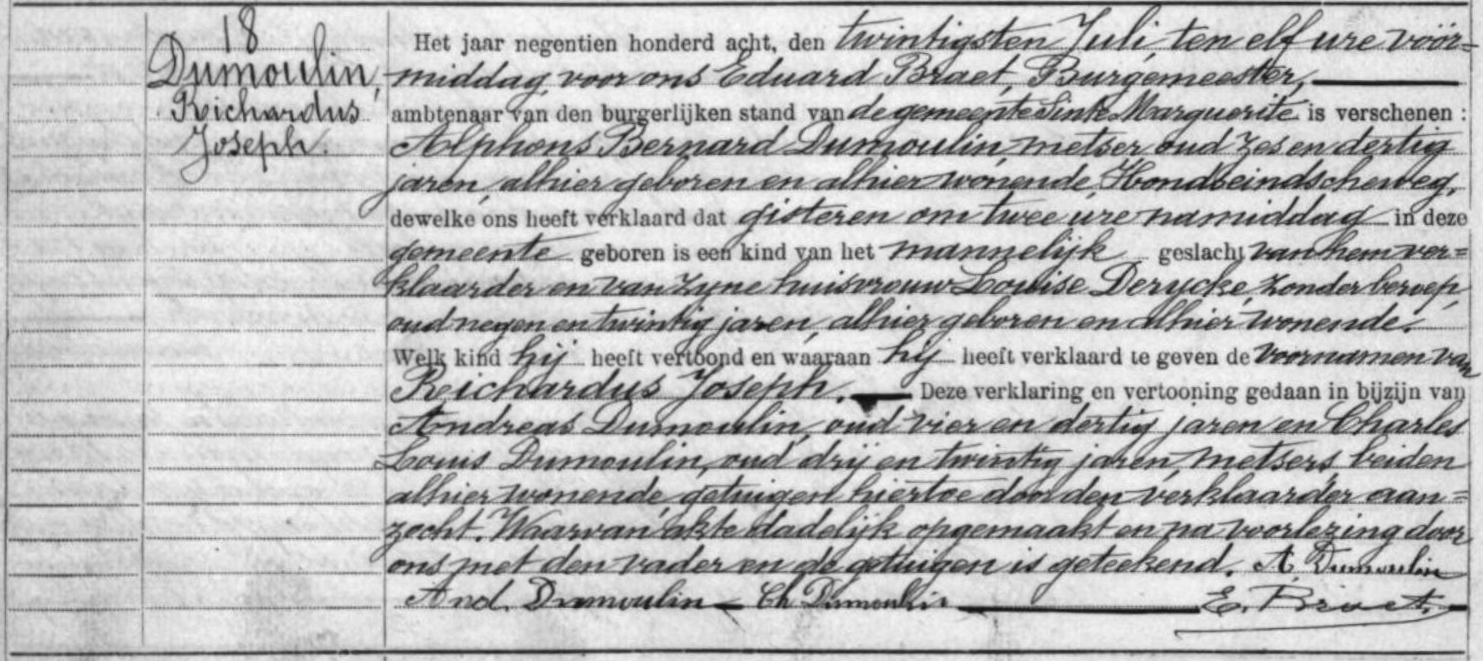 18
Dumoulin,
Reichardus
Joseph
Het jaar negentien honderd acht, den twintigsten Juli ten elf ure voor=
middag, voor ons Eduard Braet, Burgemeester,
ambtenaar van den burgerlijken stand van de gemeente Sinte Marguerite is verschenen :
Alphons Bernard Dumoulin, metser oud zes en dertig
jaren, alhier geboren en alhier wonende,
dewelke ons heeft verklaard dat gisteren om twee ure namiddag in deze
gemeente geboren is een kind van het mannelijk geslacht van hem ver=
klaarder en van zyne huisvrouw Louise Derycke, zonder beroep,
oud negen en twintig jaren, alhier geboren en alhier wonende.
Welk kind hij heeft vertoond en waaraan hij heeft verklaard te geven de voornamen van
Reichardus Joseph. Deze verklaring en vertooning gedaan in bijzijn van
Andreas Dumoulin, oud vier en dertig jaren en Charles
Louis Dumoulin, oud drij en twintig jaren, metsers beiden
alhier wonende, getuigen hiertoe door den verklaarder aan=
zocht. Waarvan akte dadelijk opgemaakt en na voorlezing door
ons met den vader en de getuigen is geteekend. A Dumoulin
And. Dumoulin Ch Dumoulin E. Braet.